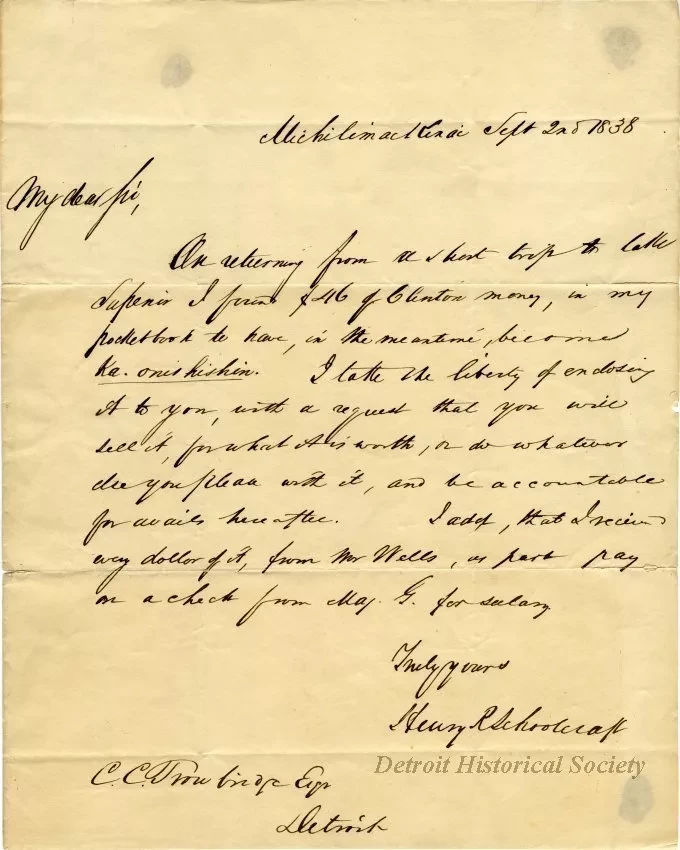 Michilimackinac Sept 2nd 1838
My dear Sir,
On returning from a short trip to Lake
Superior I found $46 of Clinton money, in my
pocketbook to have, in the meantime, become
Ka. onishishin. I take the liberty of enclosing
it to you, with a request that you will
sell it, for what it is worth, or do whatever
else you please with it, and be accountable
for avails hereafter. I add, that I received
every dollar of it, from Mr Wells, as part pay
on a check from Maj. G. for salary
Truly yours
Henry R Schoolcraft
Detroit Historical Society
C. C. Trowbridge Esqr
Detroit